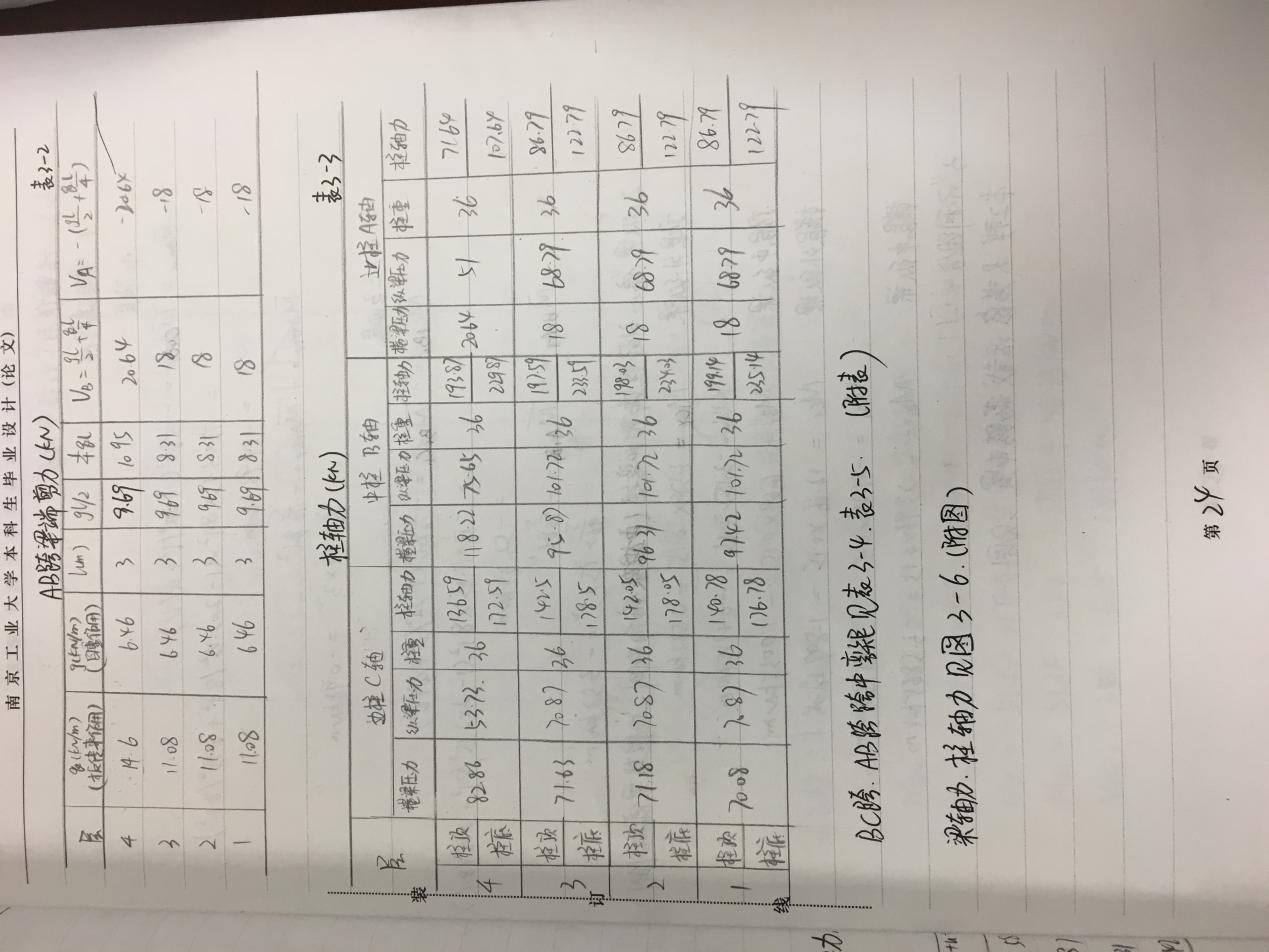 南京工业大学本科生毕业设计(论文)
AB跨梁端剪力(kN) 表3-2
层 q(kN/m)(板传来作用) g(kN/m)(自重作用) l(m) gl/2 ql/4 V_B=gl/2+ql/4 V_A=-(gl/2+ql/4)
4 14.6 6.46 3 9.69 10.95 20.64 -20.64
3 11.08 6.46 3 9.69 8.31 18 -18
2 11.08 6.46 3 9.69 8.31 18 -18
1 11.08 6.46 3 9.69 8.31 18 -18
柱轴力(kN) 表3-3
层 边柱C轴 中柱B轴 边柱A轴
横梁压力 纵梁压力 柱重 柱轴力 横梁压力 纵梁压力 柱重 柱轴力 横梁压力 纵梁压力 柱重 柱轴力
4 柱顶 82.86 53.73 36 136.59 118.22 75.65 36 193.87 20.64 51 36 71.64
柱底 172.59 229.87 107.64
3 柱顶 71.63 70.87 36 142.5 95.87 101.72 36 197.59 18 68.79 36 86.79
柱底 178.5 233.59 122.79
2 柱顶 71.18 70.87 36 142.05 96.31 101.72 36 198.03 18 68.79 36 86.79
柱底 178.05 234.03 122.79
1 柱顶 70.08 70.87 36 140.78 97.42 101.72 36 199.14 18 68.79 36 86.79
柱底 176.78 235.14 122.79
装
订
线
BC跨.AB跨跨中弯矩见表3-4.表3-5.(附表)
梁轴力.柱轴力见图3-6.(附图)
第24页